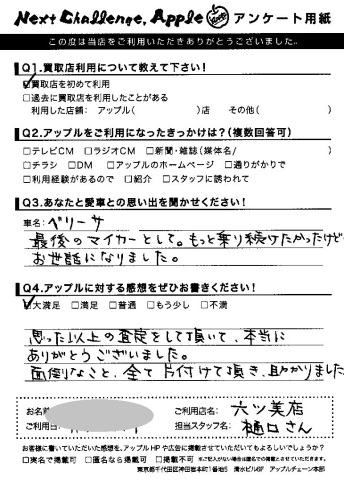 Next Challenge, Apple アンケート用紙
この度は当店をご利用いただきありがとうございました。
Q1.買取店利用について教えて下さい!
☑買取店を初めて利用
□過去に買取店を利用したことがある
利用した店舗: アップル( )店 その他( )
Q2.アップルをご利用になったきっかけは?(複数回答可)
□テレビCM □ラジオCM □新聞・雑誌(媒体名/ )
□チラシ □DM □アップルのホームページ □通りがかりで
□利用経験があるので □紹介 □スタッフに誘われて
Q3.あなたと愛車との思い出を聞かせください!
車名: ベリーサ
最後のマイカーとして。もっと乗り続けたかったけど
お世話になりました。
Q4.アップルに対する感想をぜひお書きください!
☑大満足 □満足 □普通 □もう少し □不満
思った以上の査定をして頂いて、本当に
ありがとうございました。
面倒なこと、全て片付けて頂き、助かりました
お名前 ご利用店名: 六ツ美店
ご利用日 担当スタッフ名: 樋口さん
お客様に書いていただいた感想を、アップルHPや広告に掲載させていただいてもよろしいでしょうか?
□実名で掲載可 □匿名なら掲載可 □掲載不可 ※ご記入がない場合は匿名での掲載とさせていただきます。
東京都千代田区神田岩本町1番地5 清水ビル6F アップルチェーン本部